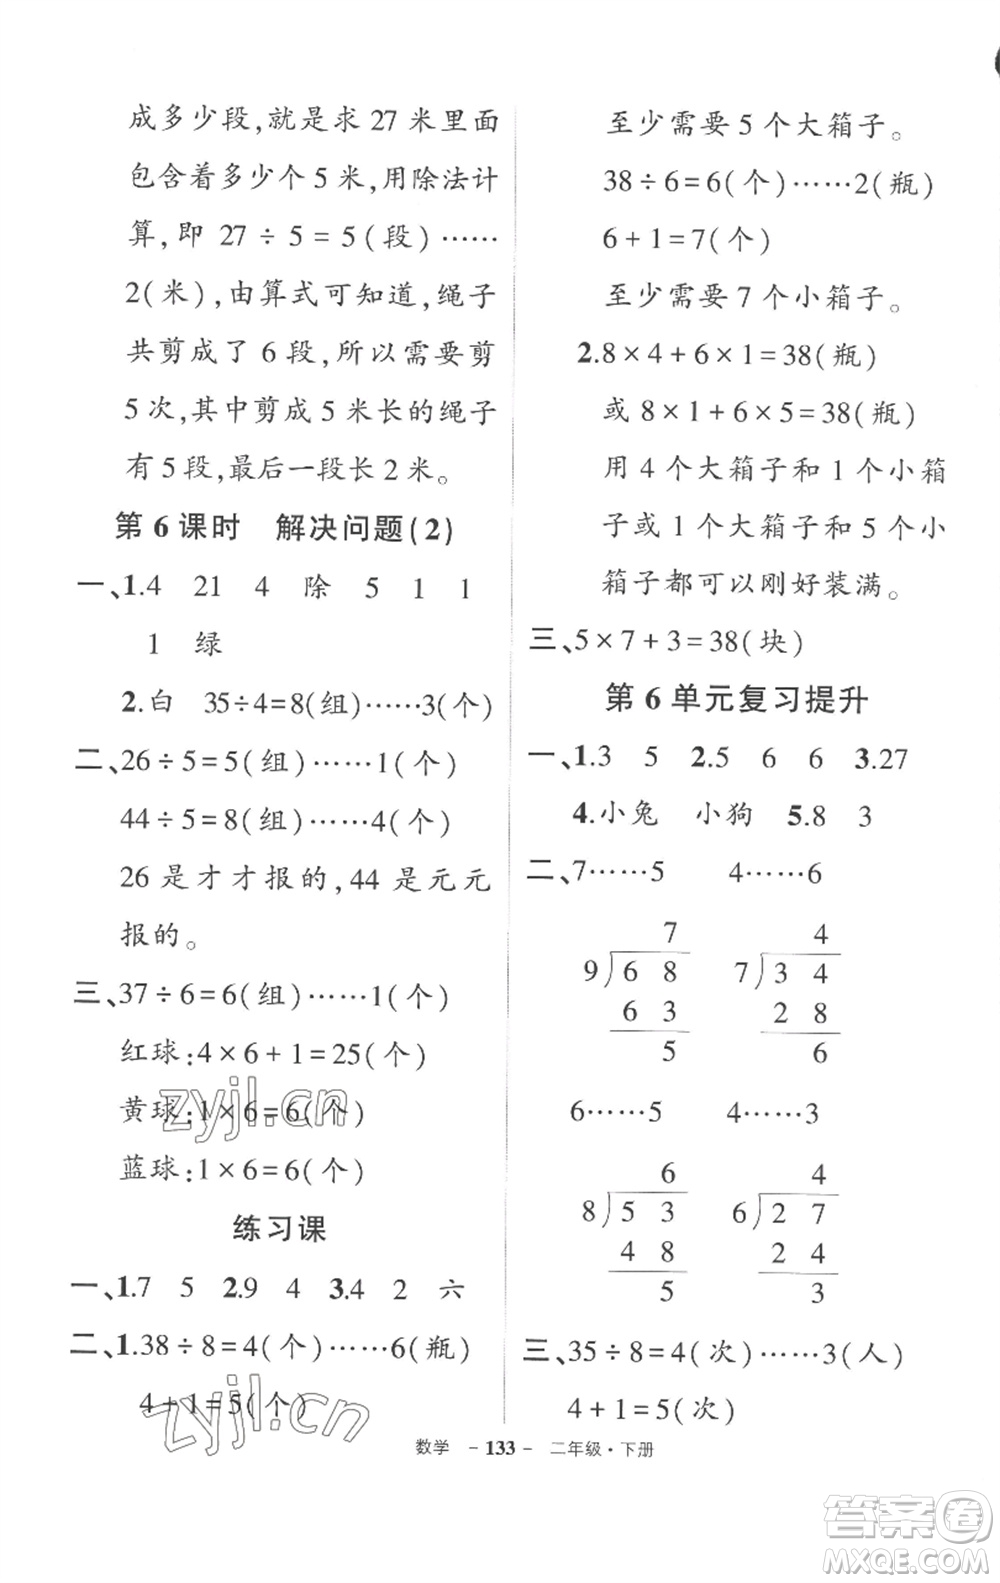 成多少段,就是求 27 米里面
包含着多少个 5 米,用除法计
算,即 27÷5=5(段)……
2(米),由算式可知道,绳子
共剪成了 6 段,所以需要剪
5 次,其中剪成 5 米长的绳子
有 5 段,最后一段长 2 米。
第 6 课时 解决问题(2)
一、1.4 21 4 除 5 1 1
1 绿
2.白 35÷4=8(组)……3(个)
二、26÷5=5(组)……1(个)
44÷5=8(组)……4(个)
26 是才才报的,44 是元元
报的。
三、37÷6=6(组)……1(个)
红球:4×6+1=25(个)
黄球:1×6=6(个)
蓝球:1×6=6(个)
练习课
一、1.7 5 2.9 4 3.4 2 六
二、1.38÷8=4(个)……6(瓶)
4+1=5(个)
至少需要 5 个大箱子。
38÷6=6(个)……2(瓶)
6+1=7(个)
至少需要 7 个小箱子。
2.8×4+6×1=38(瓶)
或 8×1+6×5=38(瓶)
用 4 个大箱子和 1 个小箱
子或 1 个大箱子和 5 个小
箱子都可以刚好装满。
三、5×7+3=38(块)
第 6 单元复习提升
一、1.3 5 2.5 6 6 3.27
4.小兔 小狗 5.8 3
二、7……5 4……6
7 4
9)68 7)34
63 28
5 6
6……5 4……3
6 4
8)53 6)27
48 24
5 3
三、35÷8=4(次)……3(人)
4+1=5(次)
数学 -133- 二年级·下册
zyjl.cn
zyjl.cn
答案圈
MXQE.COM